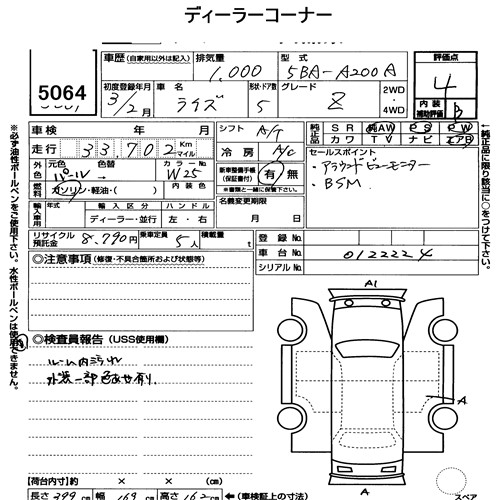 ディーラーコーナー
5064
車歴 (自家用以外は記入) 排気量 1,000 型式 5BA-A200A 評価点 4
初度登録年月 3/2月 車名 ライズ 形状・ドア数 5 グレード Z 2WD・4WD 内装補助評価 B
車検 年 月 シフト A/T 純正品 SR 純AW PS PW
走行 33,702 Km マイル 冷房 A/C 純正品 カワ TV ナビ エアB
外色 元色 パール 色替 カラーNo. W25 新車整備手帳(保証書付) 有・無 セールスポイント
※書類と一緒に保管下さい。 ・アラウンドビューモニター
燃料 ガソリン・軽油・( ) 内装色 名義変更期限 ・BSM
輸入車用 年式 輸入区分 ハンドル 月 日
ディーラー・並行 左・右
リサイクル預託金 8,790円 乗車定員 5人 積載量 t 登録No.
◎注意事項 (修復・不具合箇所および状態等) 車台No. 0122224
シリアルNo.
A1
◎検査員報告 (USS使用欄)
ルーム内汚れ
外装一部色あせ有り
A
A
【荷台内寸】 × × (cm)
長さ 399 cm 幅 169 cm 高さ 162 cm (車検証上の寸法) スペア
※必ず油性ボールペンをご使用下さい。水性ボールペンは使用できません。
純正品に限り該当に○をつけて下さい。